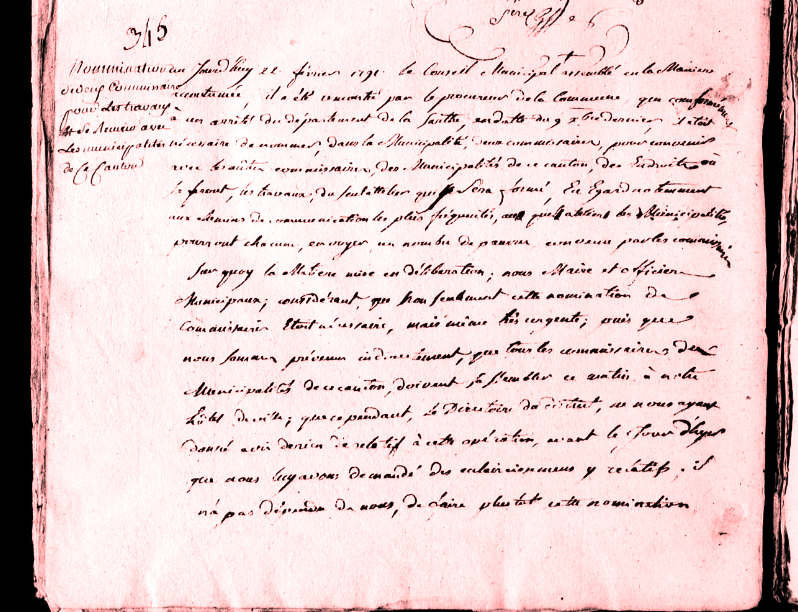 345
Nommination
de deux Commissaires
pour Les travaux
et Se Réunir avec
Les municipalités
de Ce Canton
Jourd'huy 22 février 1791 le Conseil Municipal assemblé en la Maniere
accoutumée, il a été remontré par le procureur de la Commune, que conformément
à un arrêté du département de la Sarthe, en datte du 9 Xbre dernier, il étoit
nécessaire de nommer, dans la Municipalité, deux commissaires, pour convenir
avec les autres commissaires, des Municipalités de ce canton, des Endroits où
se feront, les travaux, du seul attelier qui Sera formé, En Egard notamment
aux chemins de communication les plus fréquentés, les Municipalités,
pourront chacune, envoyer un nombre de pauvres convenu par les commissaires
Sur quoy la Matiere mise en délibération; nous Maire et officiers
Municipaux; considérant que non seulement cette nomination de
Commissaires Etoit nécessaire, mais même très urgente; puis que
nous sommes prévenus indirectement, que tous les commissaires des
Municipalités de ce canton, doivent s'assembler ce matin à notre
hôtel de ville; que cependant, Le Directoire du district, ne nous ayant
donné avis de rien de relatif à cette opération, avant le Jour d'hyer
que nous luy avons demandé des eclaircissemens y relatifs, il
n'a pas dépendu de nous, de faire plustot cette nomination